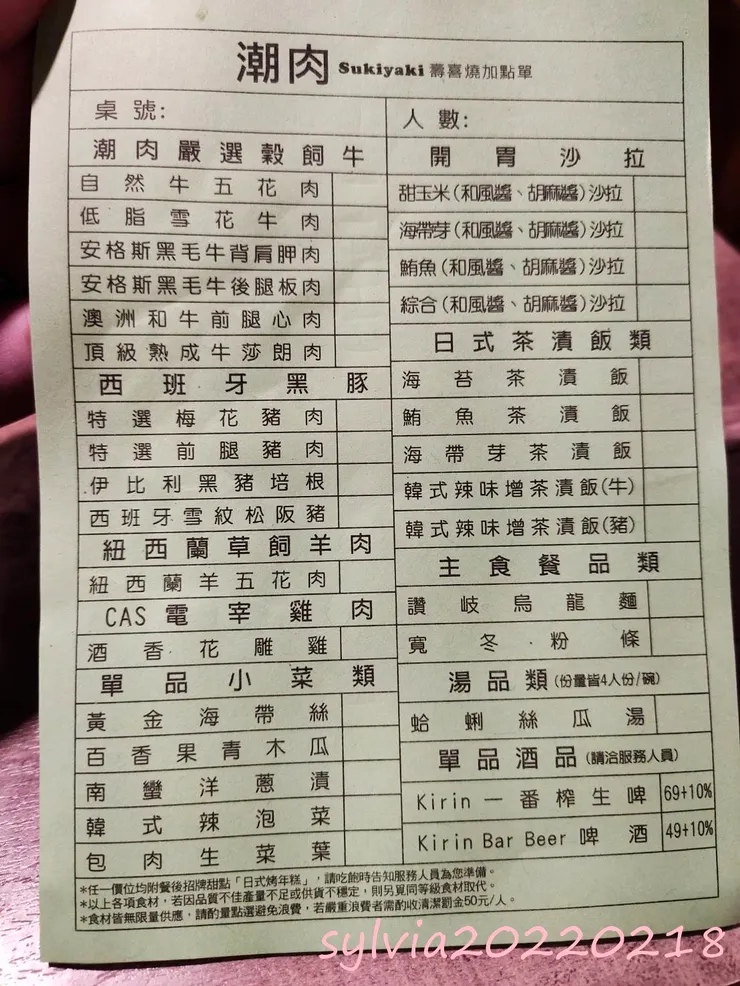 潮肉 Sukiyaki 壽喜燒加點單
桌號:
潮肉嚴選穀飼牛
自然牛五花肉
低脂雪花牛肉
安格斯黑毛牛背肩胛肉
安格斯黑毛牛後腿板肉
澳洲和牛前腿心肉
頂級熟成牛莎朗肉
西班牙黑豚
特選梅花豬肉
特選前腿豬肉
伊比利黑豬培根
西班牙雪紋松阪豬
紐西蘭草飼羊肉
紐西蘭羊五花肉
CAS電宰雞肉
酒香花雕雞
單品小菜類
黃金海帶絲
百香果青木瓜
南蠻洋蔥漬
韓式辣泡菜
包肉生菜葉
人數:
開胃沙拉
甜玉米(和風醬、胡麻醬)沙拉
海帶芽(和風醬、胡麻醬)沙拉
鮪魚(和風醬、胡麻醬)沙拉
綜合(和風醬、胡麻醬)沙拉
日式茶漬飯類
海苔茶漬飯
鮪魚茶漬飯
海帶芽茶漬飯
韓式辣味增茶漬飯(牛)
韓式辣味增茶漬飯(豬)
主食餐品類
讚岐烏龍麵
寬冬粉條
湯品類(份量皆4人份/碗)
蛤蜊絲瓜湯
單品酒品(請洽服務人員)
Kirin一番榨生啤 69+10%
Kirin Bar Beer 啤酒 49+10%
*任一價位均附餐後招牌甜點「日式烤年糕」,請吃飽時告知服務人員為您準備。
*以上各項食材,若因品質不佳產量不足或供貨不穩定,則另覓同等級食材取代。
*食材皆無限量供應,請酌量點選避免浪費,若嚴重浪費者需酌收清潔罰金50元/人。
sylvia20220218